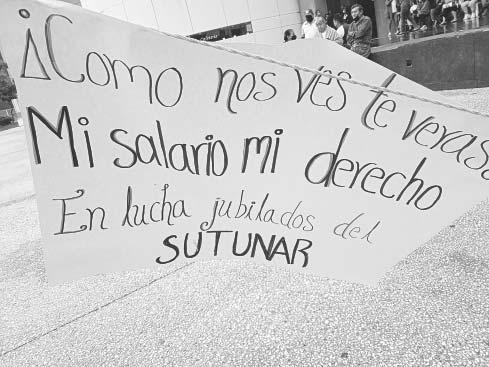 ¡Como nos ves te verass
Mi salario mi derecho
En lucha jubilados del
SUTUNAR